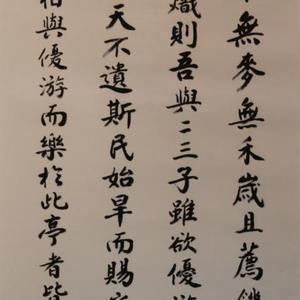 無麥無禾歲且薦饑
熾則吾與二三子雖欲優游
天不遺斯民始旱而賜
相與優游而樂於此亭者皆